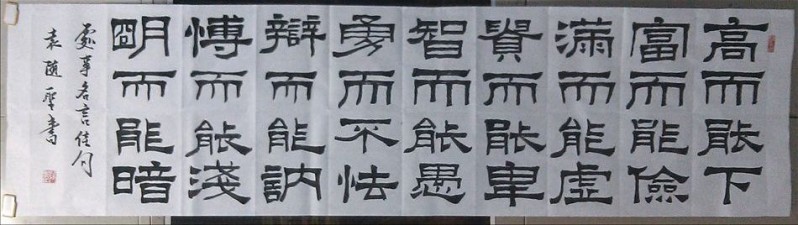 高而能下
富而能儉
滿而能虛
貴而能卑
智而能愚
勇而不怯
辯而能訥
愽而能淺
朙而能暗
處事名言佳句
袁随聖書